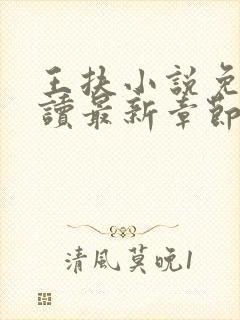 王抉小説免
讀最新章節
清風莫晚1